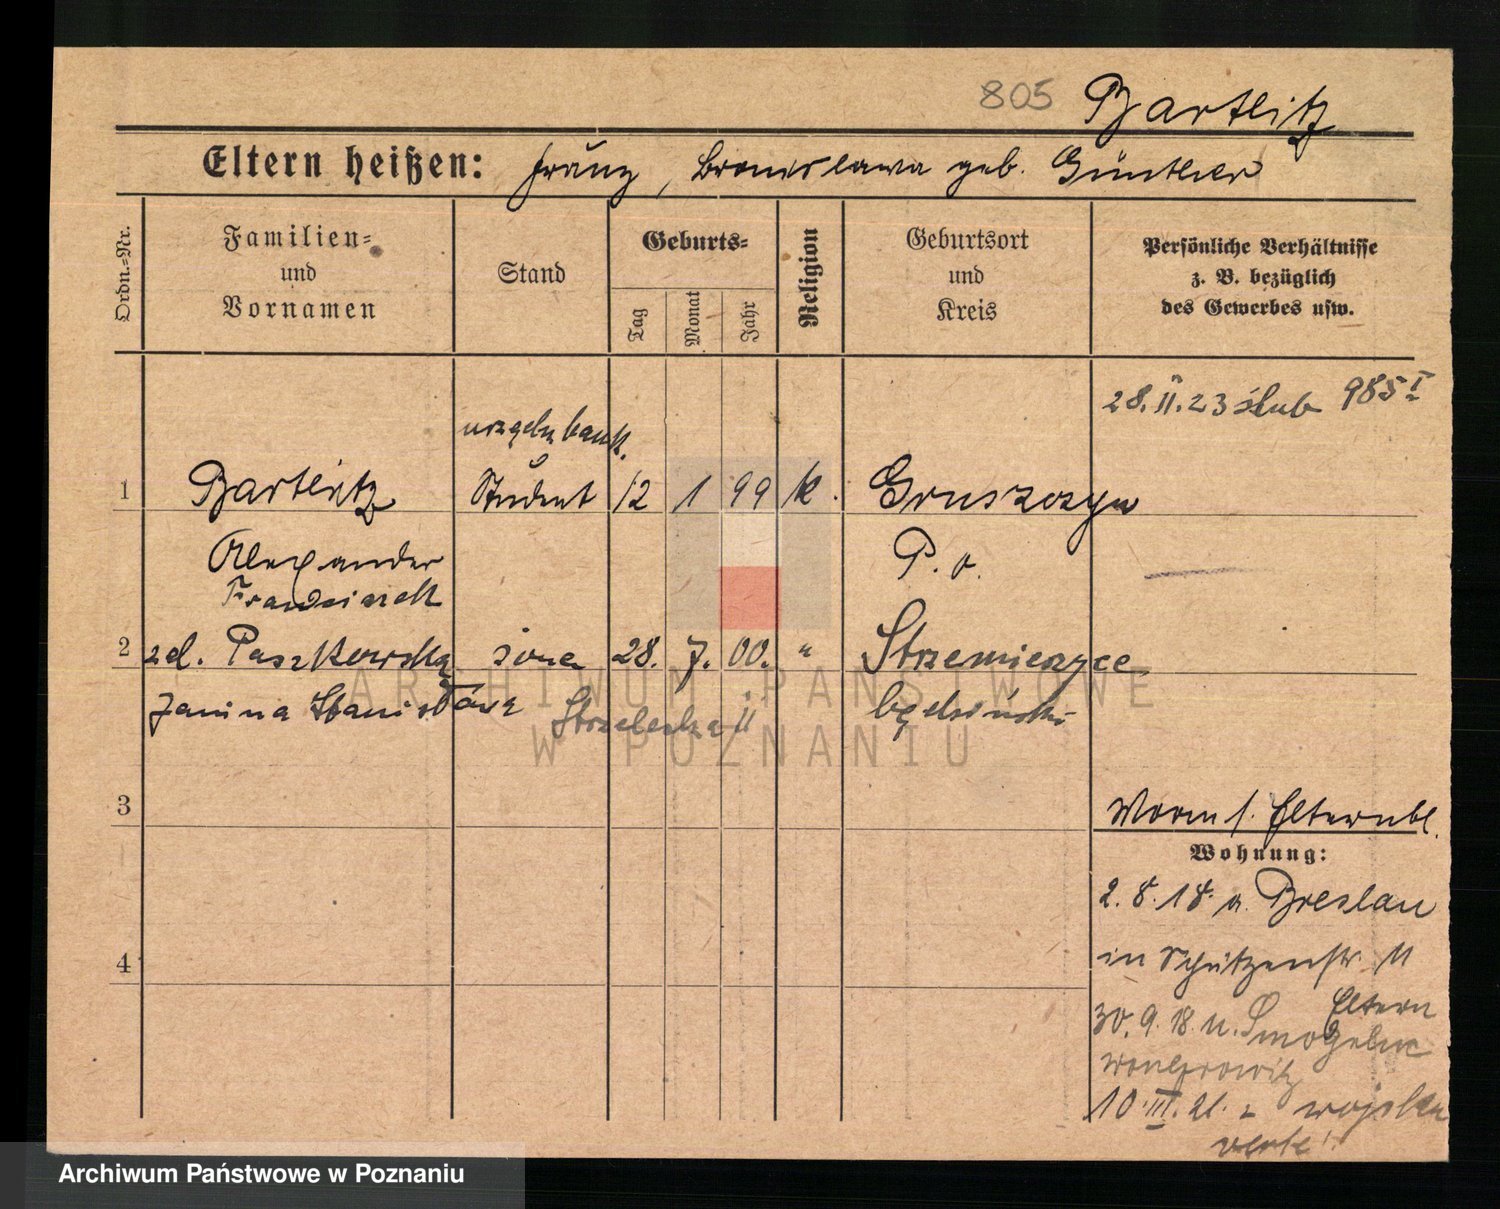 805 Bartlitz
Eltern heißen: Franz, Bronislawa geb. Günther
Ordn.-Nr.
Familien-
und
Vornamen
Stand
Geburts-
Tag
Monat
Jahr
Religion
Geburtsort
und
Kreis
Persönliche Verhältnisse
z. B. bezüglich
des Gewerbes usw.
28.II.23 ślub 985 I
bank.
1 Bartlitz Student 12 1 99 k. Gruszczyn
Alexander P. o.
Franciszek
2 zd. Paszkowska żona 28. 7. 00. " Strzemieszyce
Janina Stanisława Strzelecka II będziński
3
Worm s. Elternbl.
Wohnung:
2.8.18. n. Breslau
4
in Schützenstr. 11
Eltern
30.9.18 u.
10.III.21. z wojska
verte!
ARCHIWUM PAŃSTWOWE
W POZNANIU
Archiwum Państwowe w Poznaniu